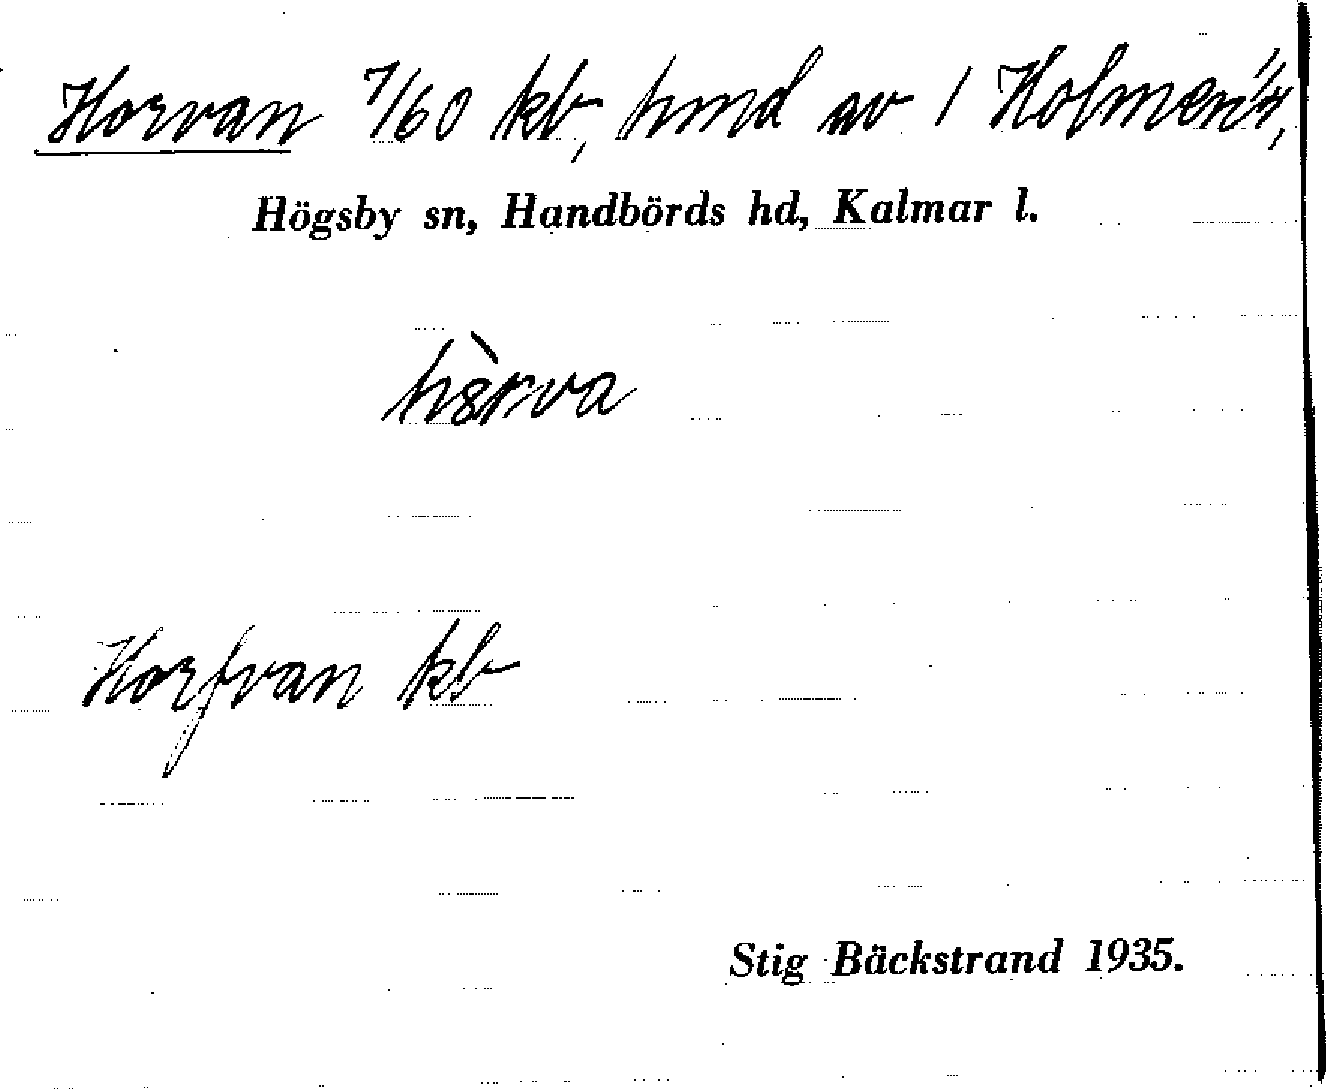 Horvan 7/60 kb, hmd av 1 Holmen's,
Högsby sn, Handbörds hd, Kalmar l.
Horfvan kb
Stig Bäckstrand 1935.